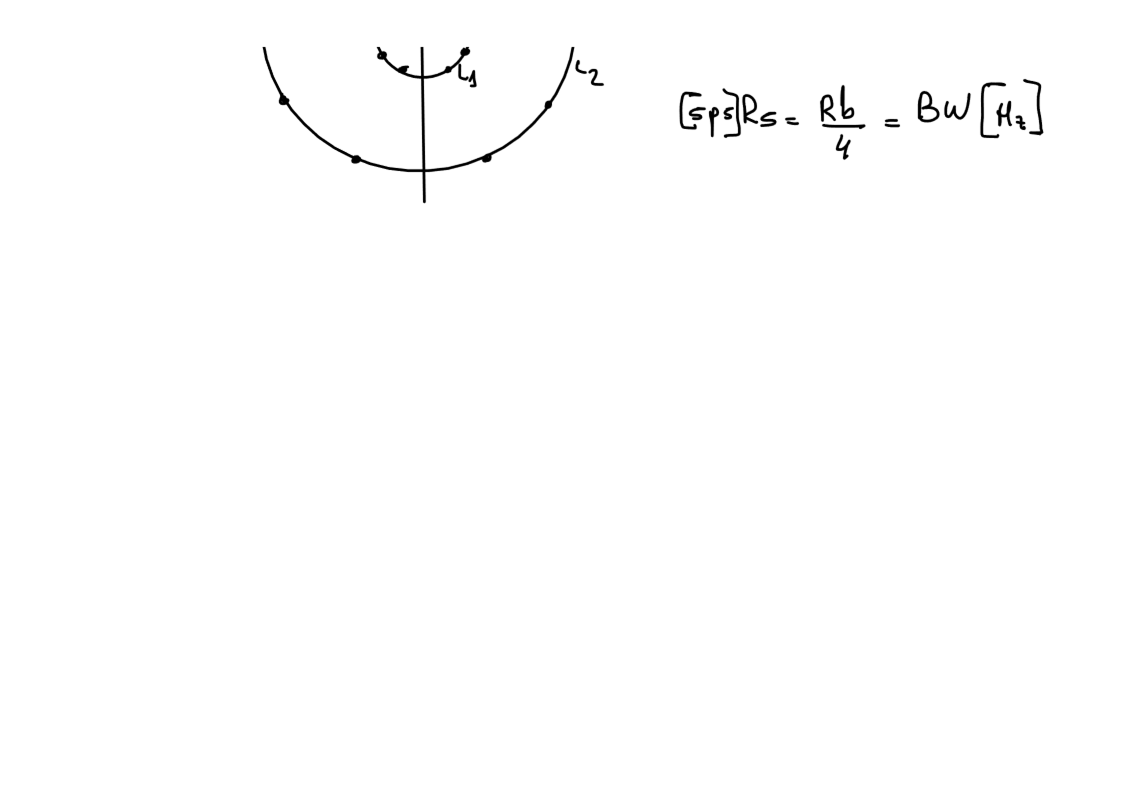 L1
L2
[sps]Rs = Rb/4 = BW [Hz]